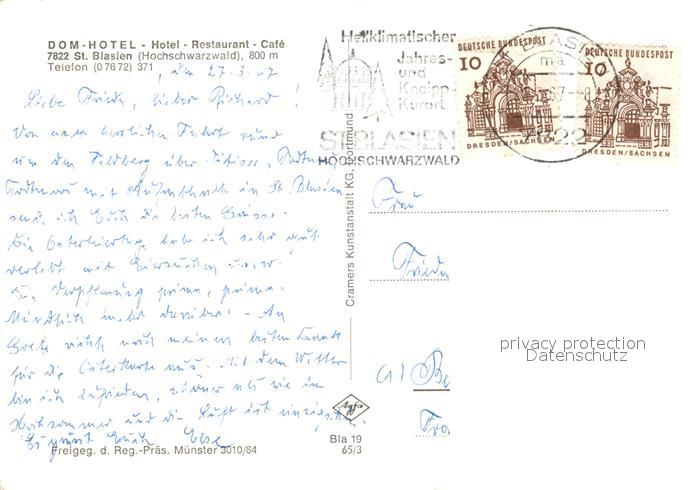 DOM-HOTEL - Hotel - Restaurant - Café
7822 St. Blasien (Hochschwarzwald), 800 m
Telefon (07672) 371
, den 27.3.67
Liebe Frieda, lieber Richard!
Von einer herrlichen Fahrt rund
um den Feldberg über Titisee,
Todtmoos mit Aufenthalt in St. Blasien
sende ich Euch die besten Grüsse.
Die Osterfeiertage habe ich sehr gut
verlebt mit Eiersuchen u.s.w.
Die Verpflegung prima, prima.
mehr darüber! - An
Grete richte noch meinen besten Dank
für die Osterkarte aus. Mit dem Wetter
bin ich zufrieden, wie im
Hochsommer und die Luft ist einzigartig.
Es grüsst Euch Else
Freigeg. d. Reg.-Präs. Münster 3010/64
Cramers Kunstanstalt KG, Dortmund
Agfa
Bla 19
65/3
Heilklimatischer
Jahres-
und
Kneipp-
Kurort
ST. BLASIEN
HOCHSCHWARZWALD
ST. BLASIEN
ma
7822
10 DEUTSCHE BUNDESPOST
DRESDEN/SACHSEN
10 DEUTSCHE BUNDESPOST
DRESDEN/SACHSEN
Frau
Frieda
privacy protection
Datenschutz
Be
Fra